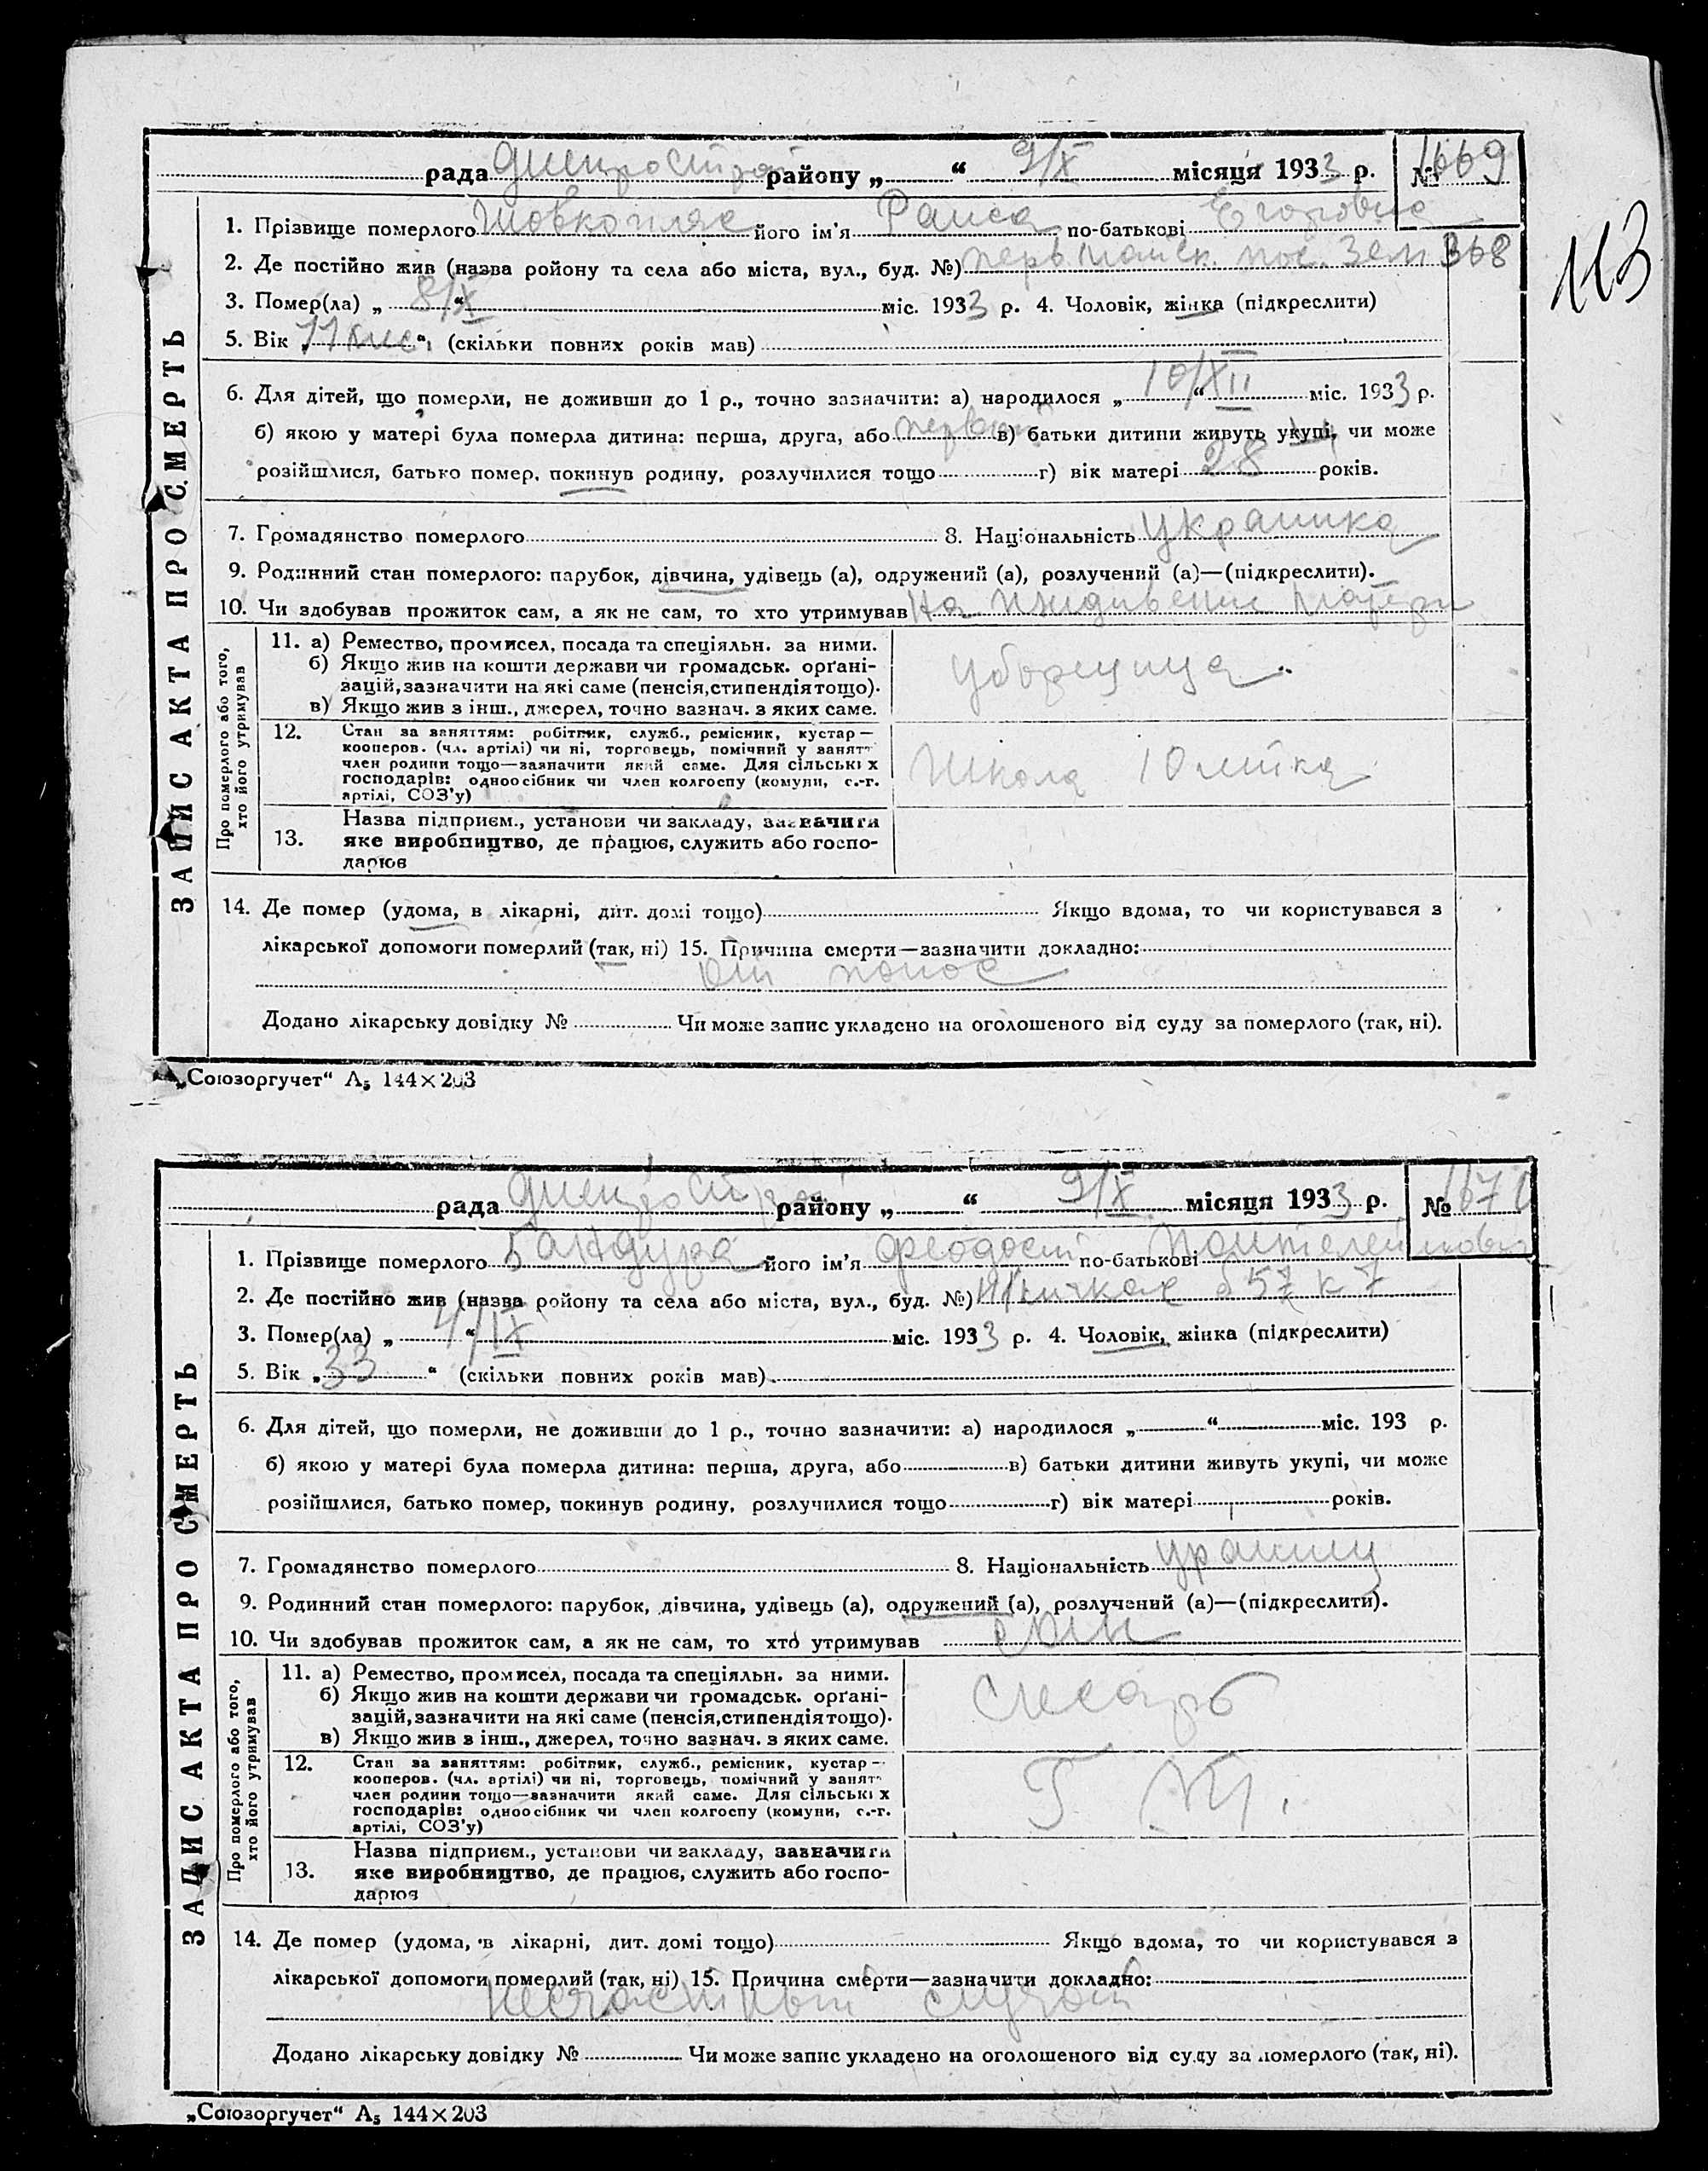 113
рада Днепрострой району „ “ 9/X місяця 1933 р. № 1669
1. Прізвище померлого Шовкопляс його ім'я Раиса по-батькові Егоровна
2. Де постійно жив (назва ройону та села або міста, вул., буд. №) перв майск. пос. Зем 368
3. Помер(ла) „ 8/X “ міс. 1933 р. 4. Чоловік, жінка (підкреслити)
5. Вік „ 11 мес “, (скільки повних років мав)
6. Для дітей, що померли, не доживши до 1 р., точно зазначити: а) народилося „ 10/XII “ міс. 1933 р.
б) якою у матері була померла дитина: перша, друга, або первый в) батьки дитини живуть укупі, чи може
розійшлися, батько помер, покинув родину, розлучилися тощо г) вік матері 28 років.
7. Громадянство померлого 8. Національність украинка
9. Родинний стан померлого: парубок, дівчина, удівець (а), одружений (а), розлучений (а)—(підкреслити).
10. Чи здобував прожиток сам, а як не сам, то хто утримував На иждивение матери
ЗАПИС АКТА ПРО СМЕРТЬ
Про померлого або того, хто його утримував
11. а) Ремество, промисел, посада та спеціяльн. за ними.
б) Якщо жив на кошти держави чи громадськ. орґані-
зацій, зазначити на які саме (пенсія, стипендія тощо).
в) Якщо жив з інш., джерел, точно зазнач. з яких саме.
уборщица.
12. Стан за заняттям: робітник, служб., ремісник, кустар—
кооперов. (чл. артілі) чи ні, торговець, помічний у занятт
член родини тощо—зазначити який саме. Для сільських
господарів: одноосібник чи член колгоспу (комуни, с.-г.
артілі, СОЗ'у)
Школа 10 летка
13. Назва підприєм., установи чи закладу, зазначити
яке виробництво, де працює, служить або госпо-
дарює
14. Де помер (удома, в лікарні, дит. домі тощо) Якщо вдома, то чи користувався з
лікарської допомоги померлий (так, ні) 15. Причина смерти—зазначити докладно:
от понос
Додано лікарську довідку № Чи може запис укладено на оголошеного від суду за померлого (так, ні).
„Союзоргучет“ А₅ 144×203
рада Днепрострой району „ “ 9/X місяця 1933 р. № 1670
1. Прізвище померлого Бандура його ім'я Феодосий по-батькові Пантелеймонович
2. Де постійно жив (назва ройону та села або міста, вул., буд. №) б 57 к 7
3. Помер(ла) „ 4/IX “ міс. 1933 р. 4. Чоловік, жінка (підкреслити)
5. Вік „ 33 “ (скільки повних років мав)
6. Для дітей, що померли, не доживши до 1 р., точно зазначити: а) народилося „ “ міс. 193 р.
б) якою у матері була померла дитина: перша, друга, або в) батьки дитини живуть укупі, чи може
розійшлися, батько помер, покинув родину, розлучилися тощо г) вік матері років.
7. Громадянство померлого 8. Національність
9. Родинний стан померлого: парубок, дівчина, удівець (а), одружений (а), розлучений (а)—(підкреслити).
10. Чи здобував прожиток сам, а як не сам, то хто утримував сам
ЗАПИС АКТА ПРО СМЕРТЬ
Про померлого або того, хто його утримував
11. а) Ремество, промисел, посада та спеціяльн. за ними.
б) Якщо жив на кошти держави чи громадськ. орґані-
зацій, зазначити на які саме (пенсія, стипендія тощо).
в) Якщо жив з інш., джерел, точно зазнач. з яких саме.
слесарь
12. Стан за заняттям: робітник, служб., ремісник, кустар—
кооперов. (чл. артілі) чи ні, торговець, помічний у занятт
член родини тощо—зазначити який саме. Для сільських
господарів: одноосібник чи член колгоспу (комуни, с.-г.
артілі, СОЗ'у)
13. Назва підприєм., установи чи закладу, зазначити
яке виробництво, де працює, служить або госпо-
дарює
14. Де помер (удома, в лікарні, дит. домі тощо) Якщо вдома, то чи користувався з
лікарської допомоги померлий (так, ні) 15. Причина смерти—зазначити докладно:
несчастный случай
Додано лікарську довідку № Чи може запис укладено на оголошеного від суду за померлого (так, ні).
„Союзоргучет“ А₅ 144×203